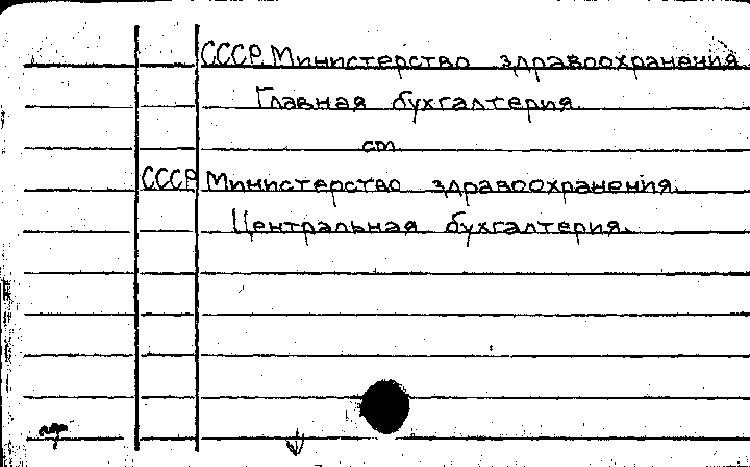 СССР. Министерство здравоохранения.
Главная бухгалтерия.
см.
СССР. Министерство здравоохранения.
Центральная бухгалтерия.